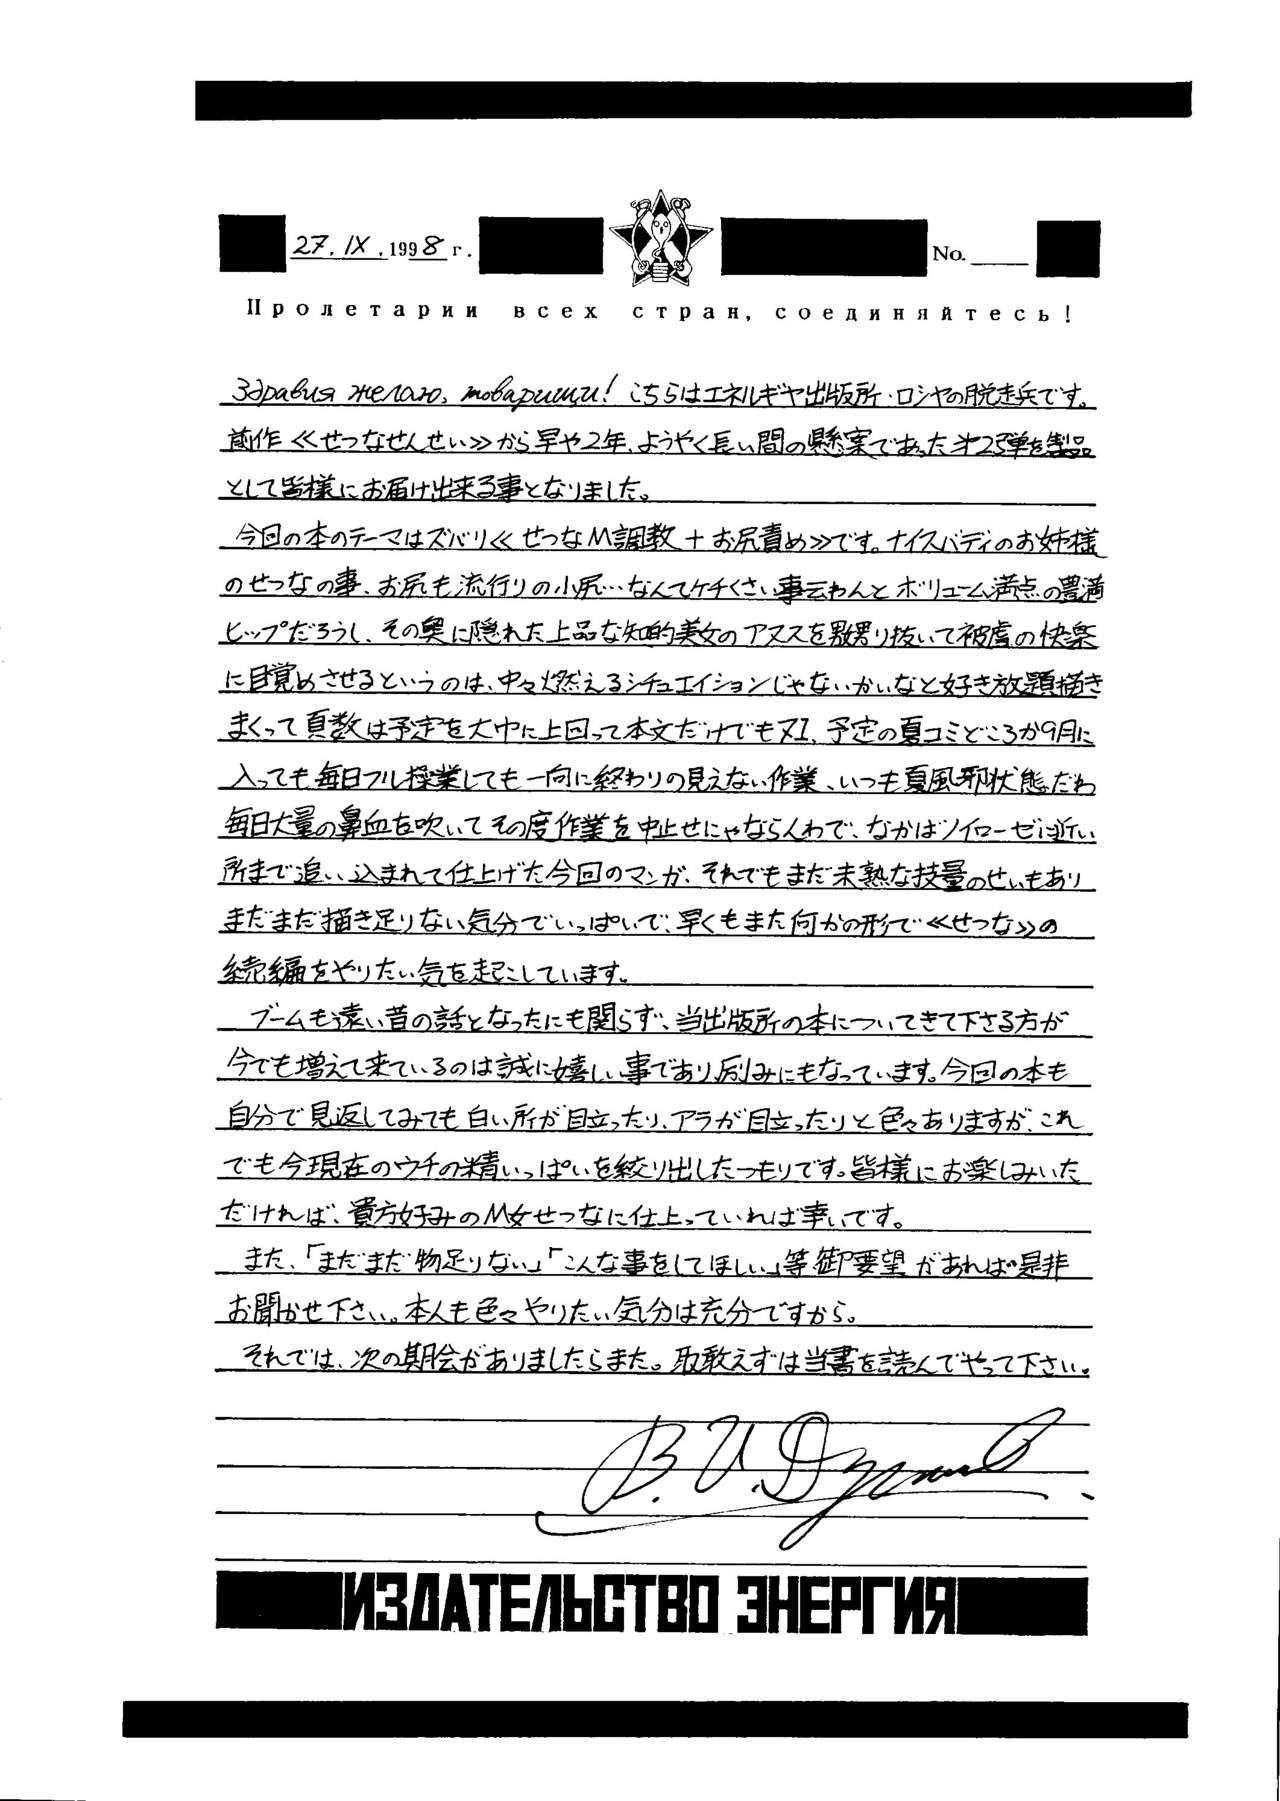 27. IX. 1998 г. No.
Пролетарии всех стран, соединяйтесь!
Здравия желаю, товарищи! こちらはエネルギヤ出版所・ロシヤの脱走兵です。
前作≪せつなせんせい≫から早や2年、ようやく長い間の懸案であった才2弾を製品
として皆様にお届け出来る事となりました。
今回の本のテーマはズバリ≪せつなM調教+お尻責め≫です。ナイスバディのお姉様
のせつなの事、お尻も流行りの小尻…なんてケチくさい事云わんとボリューム満点の豊満
ヒップだろうし、その奥に隠れた上品な知的美女のアヌスを嬲り抜いて被虐の快楽
に目覚めさせるというのは、中々燃えるシチュエイションじゃないかいなと好き放題描き
まくって頁数は予定を大巾に上回って本文だけでも、予定の夏コミどころか9月に
入っても毎日フル操業しても一向に終わりの見えない作業、いつも夏風邪状態だわ
毎日大量の鼻血を吹いてその度作業を中止せにゃならんわで、なかばノイローゼに近い
所まで追い込まれて仕上げた今回のマンガ、それでもまだ未熟な技量のせいもあり
まだまだ描き足りない気分でいっぱいで、早くもまた何かの形で≪せつな≫の
続編をやりたい気を起こしています。
ブームも遠い昔の話となったにも関らず、当出版所の本についてきて下さる方が
今でも増えて来ているのは誠に嬉しい事であり励みにもなっています。今回の本も
自分で見返してみても白い所が目立ったり、アラが目立ったりと色々ありますが、これ
でも今現在のウチの精いっぱいを絞り出したつもりです。皆様にお楽しみいた
だければ、貴方好みのM女せつなに仕上っていれば幸いです。
また、「まだまだ物足りない」「こんな事をしてほしい」等御要望があれば是非
お聞かせ下さい。本人も色々やりたい気分は充分ですから。
それでは、次の期会がありましたらまた。取敢えずは当書を読んでやって下さい。
В. И. Д
ИЗДАТЕЛЬСТВО ЭНЕРГИЯ